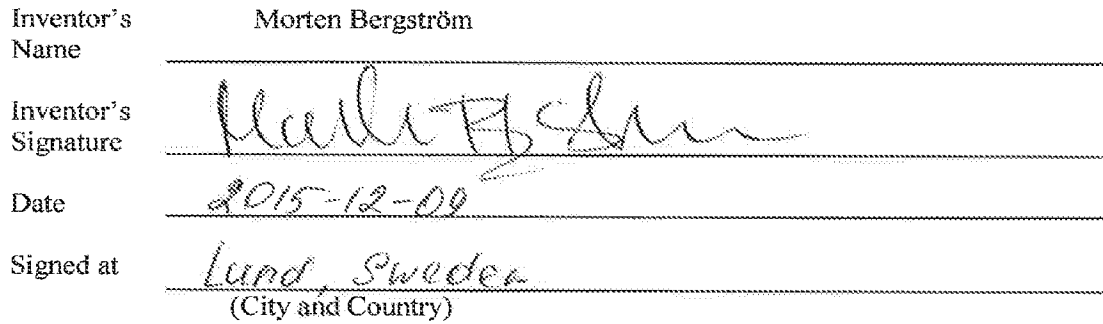 Inventor's Name Morten Bergström
Inventor's Signature
Date 2015-12-09
Signed at Lund, Sweden
(City and Country)